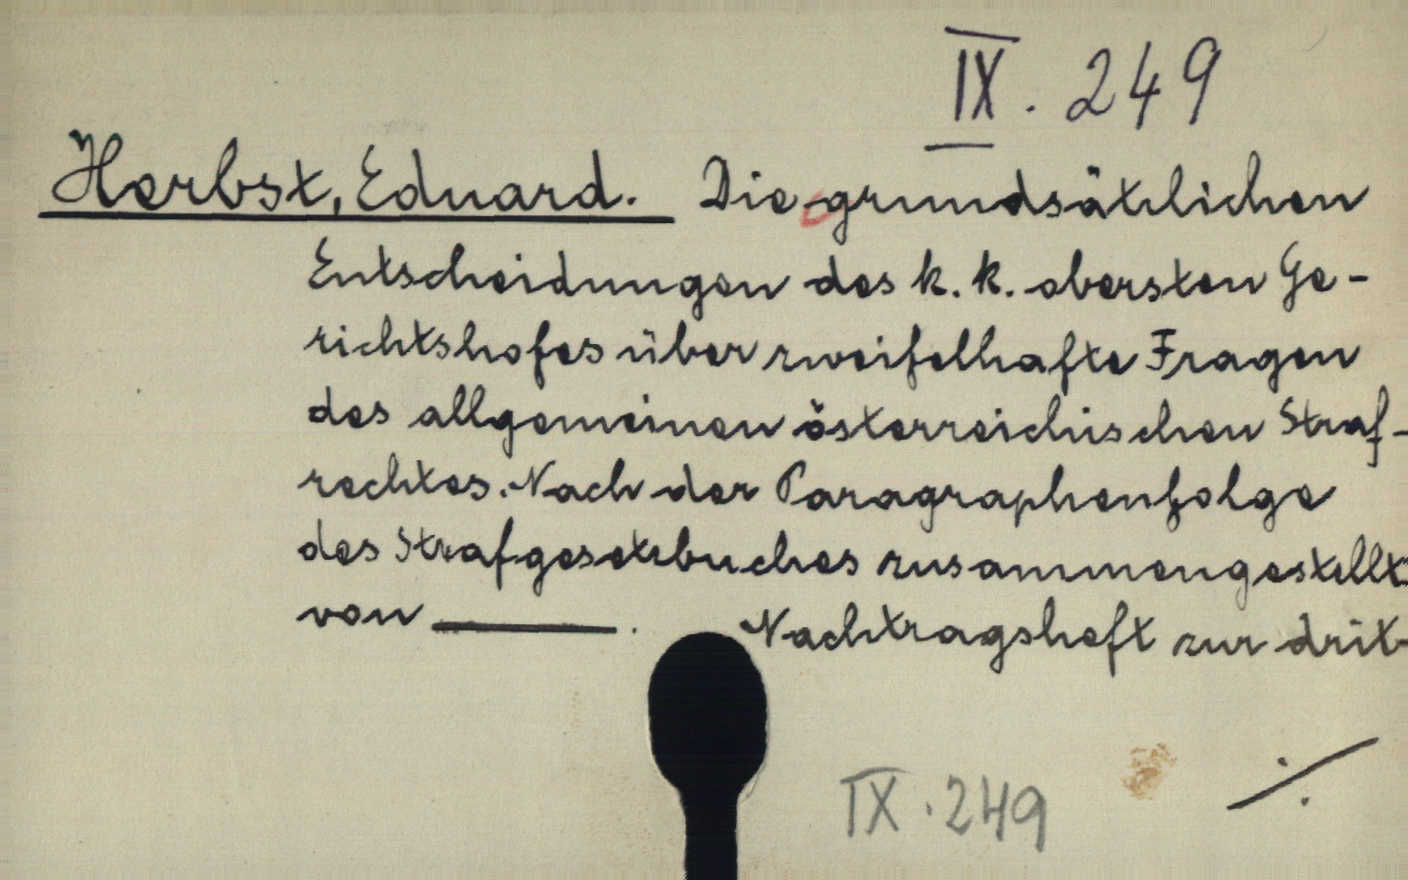 IX. 249
Herbst, Eduard. Die grundsätzlichen
Entscheidungen des k. k. obersten Ge-
richtshofes über zweifelhafte Fragen
des allgemeinen österreichischen Straf-
rechtes. Nach der Paragraphenfolge
des Strafgesetzbuches zusammengestellt
von ———. Nachtragsheft zur drit-
IX. 249 ./.